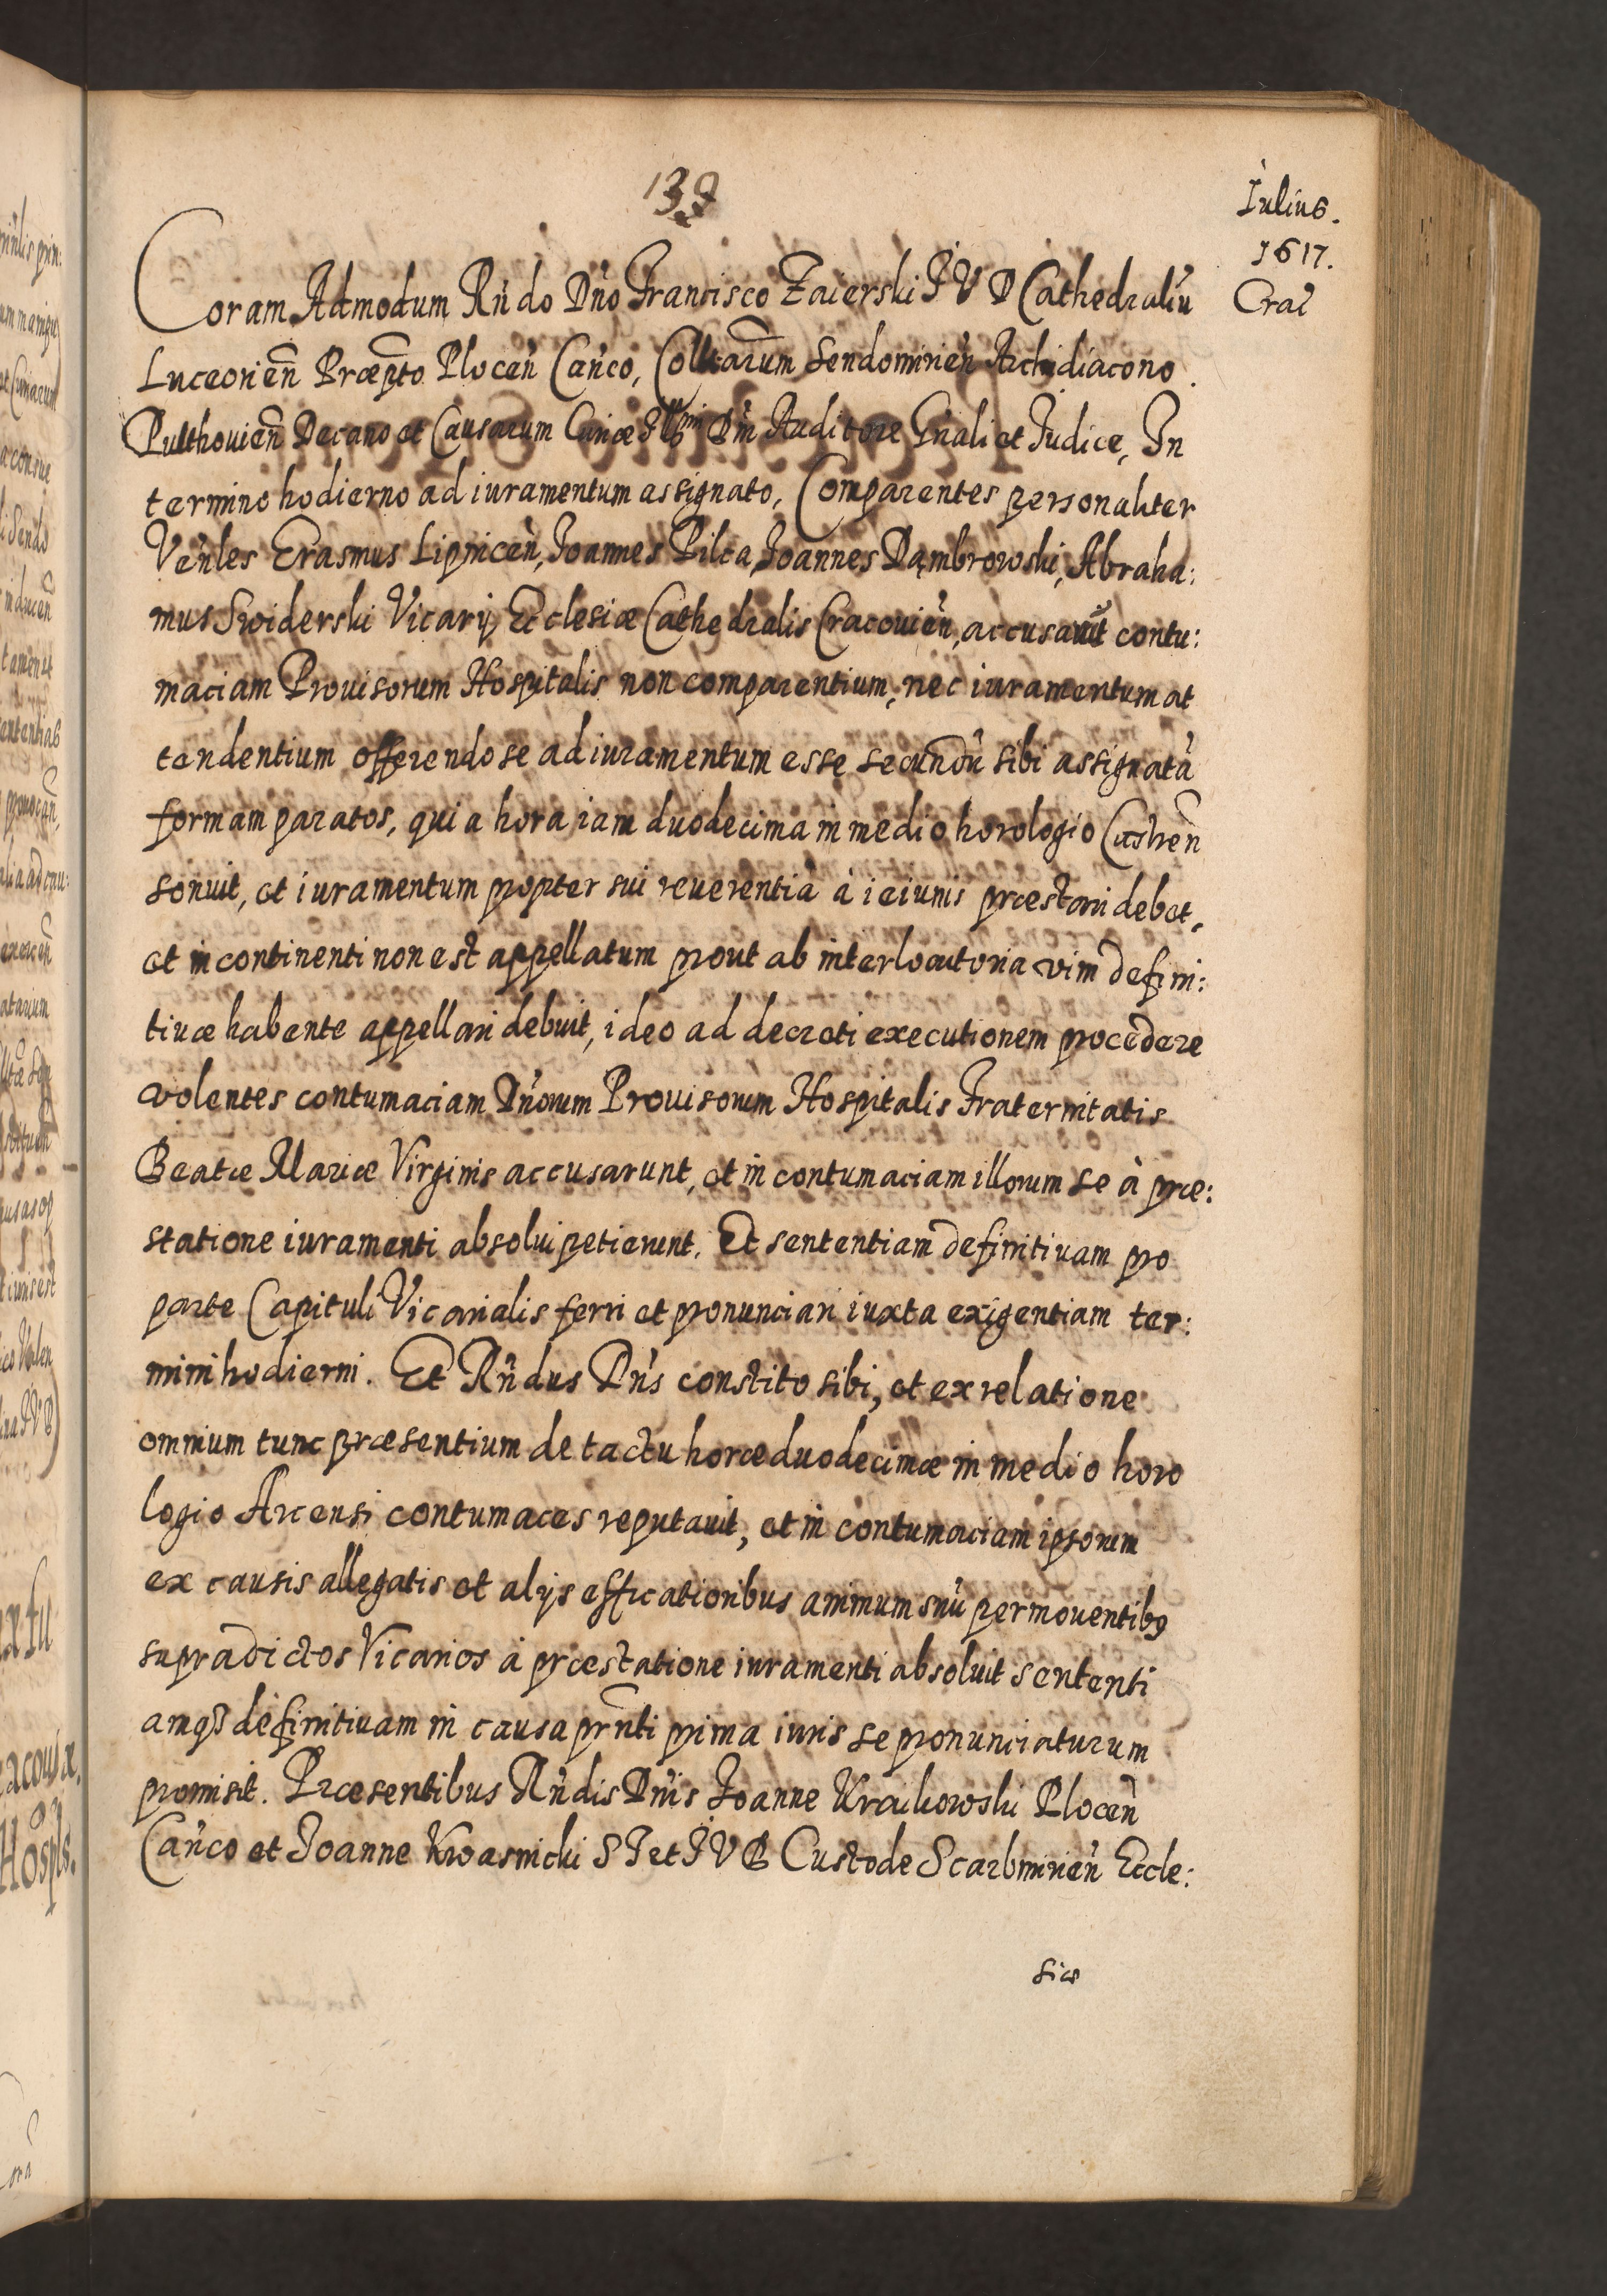 139
Iulius.
1617.
Crac̃
Coram Admodum Rñdo Dño Francisco Zaierski I V D Cathedraliũ
Luceorieñ Præp̃to Ploceñ Cañco, Coll̃tarum Sendomirieñ Archidiacono
Pulthouieñ Decano et Causarum Curiæ Ill̃mi Dñi Auditore Gñali et Iudice, In
termino hodierno ad iuramentum assignato, Comparentes personaliter
Veñles Erasmus Lipniceñ, Ioannes Pilca, Ioannes Dąmbrowski, Abraha:
mus Swiderski Vicarij Ecclesiæ Cathedralis Cracouieñ, accusauit contu:
maciam Prouisorum Hospitalis non comparentium, nec iuramentum at
tendentium offerendo se ad iuramentum esse secundũ sibi assignatã
formam paratos, quia hora iam duodecima in medio horologio Castreñ
sonuit, et iuramentum propter sui reuerentiã à ieiunis præstari debet,
et in continenti non est appellatum prout ab interlocutoria vim defini:
tiuæ habente appellari debuit, ideo ad decreti executionem procedere
volentes contumaciam Dñorum Prouisorum Hospitalis Fraternitatis
Beatæ Mariæ Virginis accusarunt, et in contumaciam illorum se à præ:
statione iuramenti absolui petierunt. Et sententiam definitiuam pro
parte Capituli Vicarialis ferri et pronunciari iuxta exigentiam ter:
mini hodierni. Et Rñdus Dñs constito sibi, et ex relatione
omnium tunc præsentium de tactu horæ duodecimæ in medio horo
logio Arcensi contumaces reputauit, et in contumaciam ipsorum
ex causis allegatis et alijs efficatioribus animum suũ permouentibꝯ
supradictos Vicarios à præstatione iuramenti absoluit sententi
amqꝫ definitiuam in causa prñti prima iuris se pronunciaturum
promisit. Præsentibus Rñdis Dñis Ioanne Kraikowski Ploceñ
Cañco et Ioanne Kwasnicki S T et I V D Custode Scarbmirieñ Eccle:
siæ